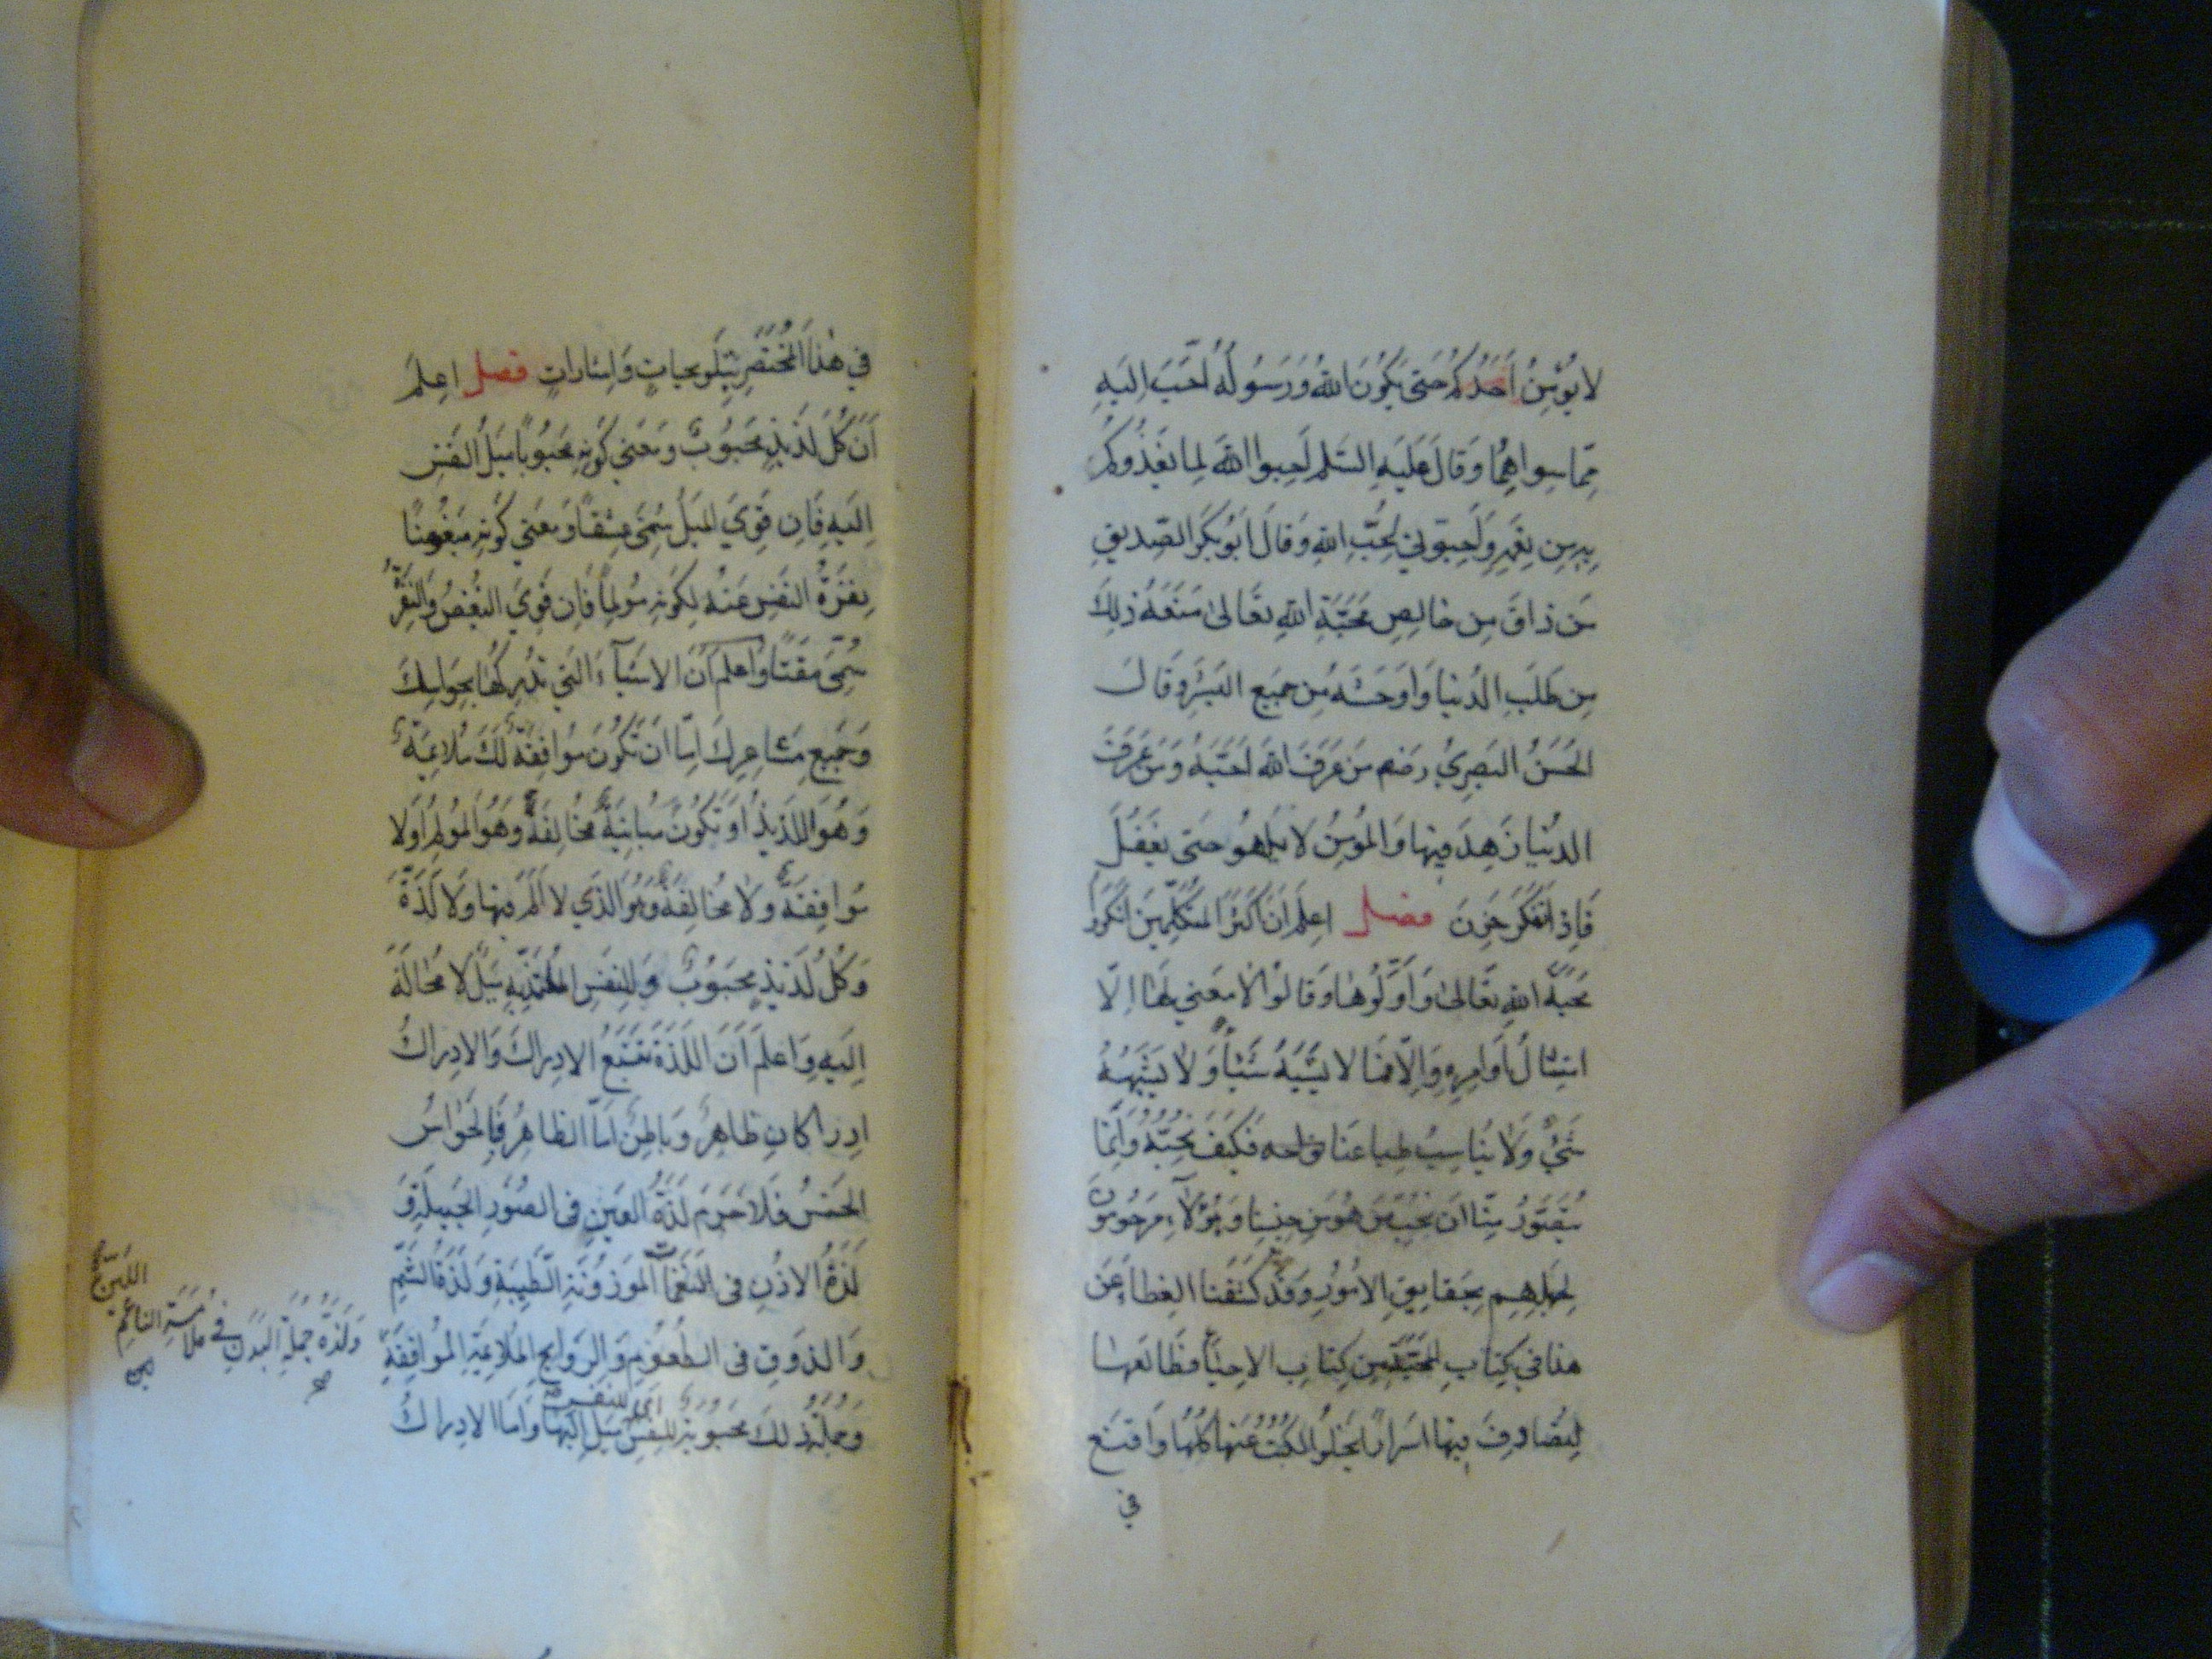 لَا يُؤْمِنُ أَحَدُكُمْ حَتَّى يَكُونَ اللهُ وَرَسُولُهُ أَحَبَّ إِلَيْهِ
مِمَّا سِوَاهُمَا وَقَالَ عَلَيْهِ السَّلم أَحِبُّوا اللهَ لِمَا يَغْذُوكُمْ
بِهِ مِنْ نِعَمِهِ وَأَحِبُّونِي لِحُبِّ اللهِ وَقَالَ أَبُو بَكْرٍ الصِّدِّيقِ
مَنْ ذَاقَ مِنْ خَالِصِ مَحَبَّةِ اللهِ تَعَالَى مَنَعَهُ ذَلِكَ
مِنْ طَلَبِ الدُّنْيَا وَأَوْحَشَهُ مِنْ جَمِيعِ الْبَشَرِ وَقَالَ
الْحَسَنُ الْبَصْرِيُّ رضه مَنْ عَرَفَ اللهَ أَحَبَّهُ وَمَنْ عَرَفَ
الدُّنْيَا زَهِدَ فِيهَا وَالْمُؤْمِنُ لَا يَلْهُو حَتَّى يَغْفُلَ
فَإِذَا تَفَكَّرَ حَزِنَ فصل اعْلَمْ أَنَّ أَكْثَرَ الْمُتَكَلِّمِينَ أَنْكَرُوا
مَحَبَّةَ اللهِ تَعَالَى وَأَوَّلُوهَا وَقَالُوا لَا مَعْنَى لَهَا إِلَّا
امْتِثَالُ أَوَامِرِهِ وَإِلَّا فَمَا لَا يُشْبِهُ شَيْئًا وَلَا يُشْبِهُهُ
شَيْءٌ وَلَا يُنَاسِبُ طِبَاعَنَا فَكَيْفَ نُحِبُّهُ وَإِنَّمَا
يُتَصَوَّرُ مِنَّا أَنْ نُحِبَّ مَنْ هُوَ مِنْ جِنْسِنَا وَهَؤُلَاءِ مَحْرُومُونَ
لِجَهْلِهِمْ بِحَقَايِقِ الْأُمُورِ وَقَدْ كَشَفْنَا الْغِطَاءَ عَنْ
هذا فِي كِتَابِ الْمَحَبَّةِ مِنْ كِتَابِ الْإِحْيَاءِ فَطَالِعْهَا
لِتُصَادِفَ فِيهَا أَسْرَارًا يَخْلُو الْكُتُبُ عَنْهَا كُلُّهَا وَاقْتَنِعْ
فِي
فِي هَذَا الْمُخْتَصَرِ بِتَلْوِيحَاتٍ وَإِشَارَاتٍ فصل اعْلَمْ
أَنَّ كُلَّ لَذِيذٍ مَحْبُوبٌ وَمَعْنَى كَوْنِهِ مَحْبُوبًا مَيْلُ النَّفْسِ
إِلَيْهِ فَإِنْ قَوِيَ الْمَيْلُ سُمِّيَ عِشْقًا وَمَعْنَى كَوْنِهِ مَبْغُوضًا
نَفْرَةُ النَّفْسِ عَنْهُ لِكَوْنِهِ مُولِمًا فَإِنْ قَوِيَ الْبُغْضُ وَالنَّفْرَةُ
سُمِّيَ مَقْتًا وَاعْلَمْ أَنَّ الْأَشْيَاءَ الَّتِي تُدْرِكُهَا بِحَوَاسِّكَ
وَجَمِيعِ مَشَاعِرِكَ إِمَّا أَنْ تَكُونَ مُوَافِقَةً لَكَ مُلَائِمَةً
وَهُوَ اللَّذِيذُ أَوْ تَكُونَ مُبَايِنَةً مُخَالِفَةً وَهُوَ الْمُولِمُ أَوْ لَا
مُوَافِقَةً وَلَا مُخَالِفَةً وَهُوَ الَّذِي لَا أَلَمَ فِيهَا وَلَا لَذَّةَ
وَكُلُّ لَذِيذٍ مَحْبُوبٌ وَلِلنَّفْسِ الْمُلْتَذَّةِ بِهِ مَيْلٌ لَا مَحَالَةَ
إِلَيْهِ وَاعْلَمْ أَنَّ اللَّذَّةَ تَتْبَعُ الْإِدْرَاكَ وَالْإِدْرَاكُ
إِدْرَاكَانِ ظَاهِرٌ وَبَاطِنٌ أَمَّا الظَّاهِرُ فَبِالْحَوَاسِّ
الْخَمْسِ فَلَا جَرَمَ لَذَّةُ الْعَيْنِ فِي الصُّوَرِ الْجَمِيلَةِ وَ
لَذَّةُ الْأُذُنِ فِي النَّغَمَاتِ الْمَوْزُونَةِ الطَّيِّبَةِ وَلَذَّةُ الشَّمِّ
وَالذَّوْقِ فِي الطُّعُومِ وَالرَّوَايِحِ الْمُلَائِمَةِ الْمُوَافِقَةِ
وَلَذَّةُ جُمْلَةِ الْبَدَنِ فِي مُلَامَسَةِ النَّاعِمِ
اللَّيِّنِ
وَجُمْلَةُ ذَلِكَ مَحْبُوبَةٌ لِلنَّفْسِ مَيْلٌ إِلَيْهَا وَأَمَّا الْإِدْرَاكُ